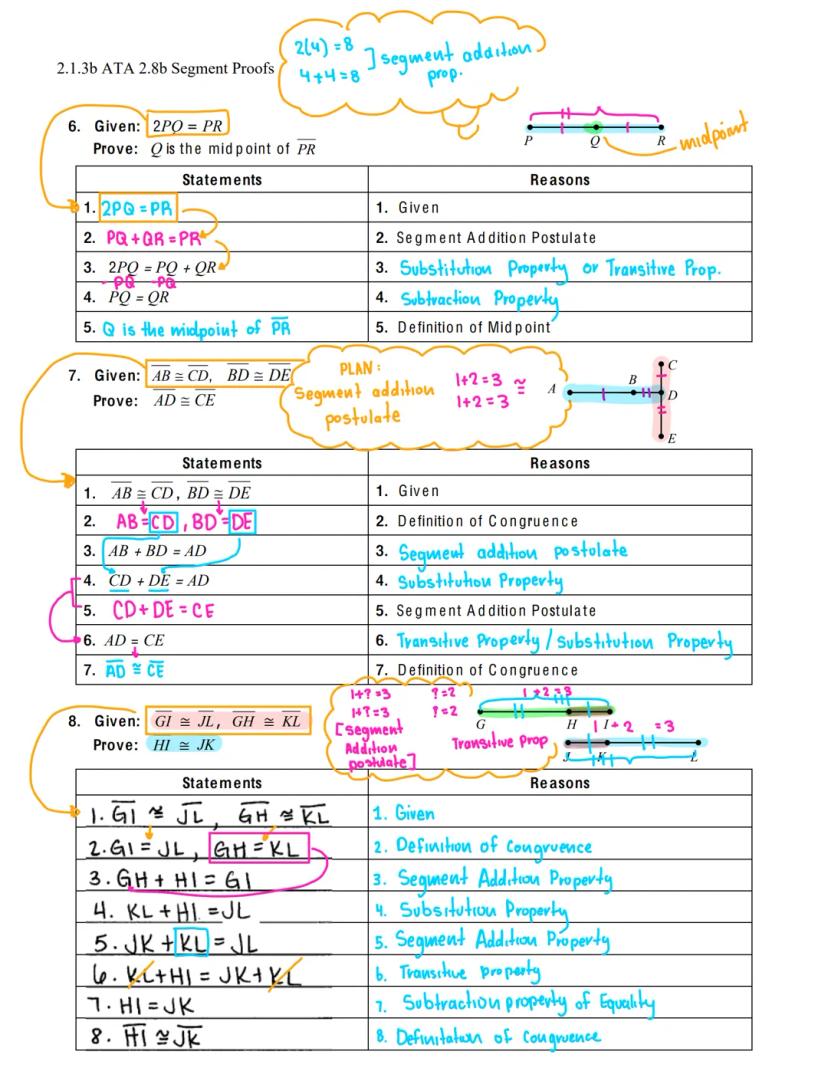 2.1.3b ATA 2.8b Segment Proofs
2(4) = 8
4+4=8
] segment addition
prop.
6. Given: 2PQ = PR
Prove: Q is the midpoint of PR
P Q R
midpoint
Statements Reasons
1. 2PQ = PR 1. Given
2. PQ + QR = PR 2. Segment Addition Postulate
3. 2PQ = PQ + QR 3. Substitution Property or Transitive Prop.
-PQ -PQ
4. PQ = QR 4. Subtraction Property
5. Q is the midpoint of PR 5. Definition of Midpoint
7. Given: AB ≅ CD, BD ≅ DE
Prove: AD ≅ CE
PLAN:
Segment addition
postulate
1+2=3
1+2=3
≅
A B C D E
Statements Reasons
1. AB ≅ CD, BD ≅ DE 1. Given
2. AB=CD, BD=DE 2. Definition of Congruence
3. AB + BD = AD 3. Segment addition postulate
4. CD + DE = AD 4. Substitution Property
5. CD+DE = CE 5. Segment Addition Postulate
6. AD = CE 6. Transitive Property / Substitution Property
7. AD ≅ CE 7. Definition of Congruence
8. Given: GI ≅ JL, GH ≅ KL
Prove: HI ≅ JK
1+?=3 ?=2
1+?=3 ?=2
[segment
Addition
postulate]
Transitive Prop
1+2=3
G H I
1+2 =3
J K L
Statements Reasons
1. GI ≅ JL, GH ≅ KL 1. Given
2. GI = JL, GH = KL 2. Definition of Congruence
3. GH + HI = GI 3. Segment Addition Property
4. KL + HI = JL 4. Subsitution Property
5. JK + KL = JL 5. Segment Addition Property
6. KL+HI = JK+KL 6. Transitive property
7. HI = JK 7. Subtraction property of Equality
8. HI ≅ JK 8. Definitation of Congruence